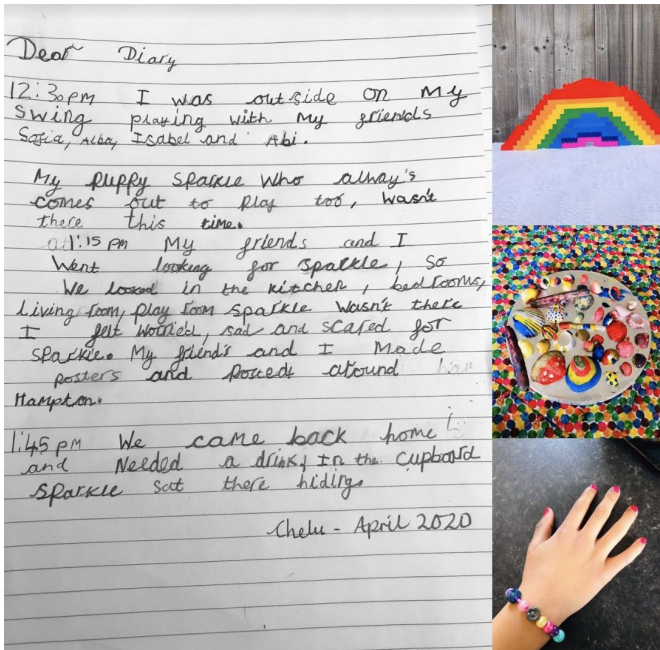 Dear Diary
12:30pm I was outside on My
Swing playing with My friends
Sofia, Alba, Isabel and Abi.
My puppy sparkle Who alway's
comes out to play too, wasn't
there this time.
at 1:15 pm My friends and I
Went looking for sparkle, So
We looked in the kitchen, bedrooms,
Living room, play room sparkle wasn't there
I felt worried, sad and scared for
sparkle. My friend's and I Made
posters and Posted around
Hampton.
1:45 pm We came back home
and Needed a drink, In the cupboard
sparkle sat there hiding.
Chelu - April 2020